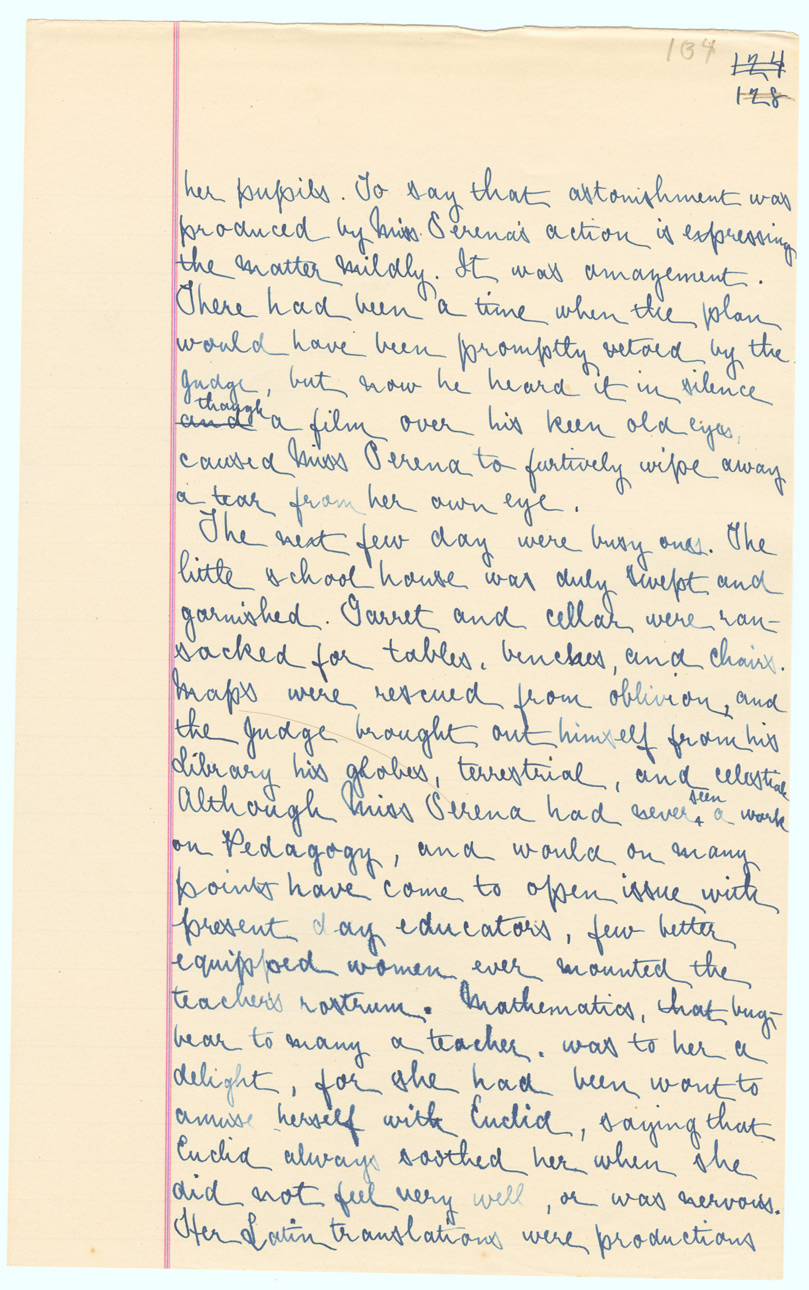 134
124
128
her pupils. To say that astonishment was
produced by Miss Serena's action is expressing
the matter mildly. It was amazement.
There had been a time when the plan
would have been promptly vetoed by the
Judge, but now he heard it in silence
though
and a film over his keen old eyes,
caused Miss Serena to furtively wipe away
a tear from her own eye.
The next few day were busy ones. The
little school house was duly swept and
garnished. Garret and cellar were ran-
sacked for tables, benches, and chairs.
Maps were rescued from oblivion, and
the Judge brought out himself from his
Library his globes, terrestrial, and celestial
seen
Although Miss Serena had never a work
on Pedagogy, and would on many
points have come to open issue with
present day educators, few better
equipped women ever mounted the
teacher's rostrum. Mathematics, that bug-
bear to many a teacher. was to her a
delight, for she had been wont to
amuse herself with Euclid, saying that
Euclid always soothed her when she
did not feel very well, or was nervous.
Her Latin translations were productions